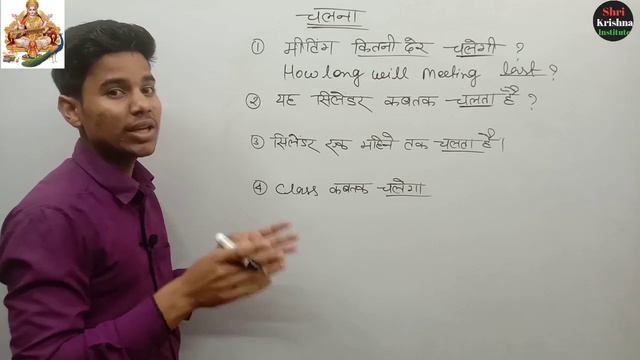 चलना
① मीटिंग कितनी देर चलेगी ?
How long will Meeting last ?
② यह सिलेंडर कबतक चलता है ?
③ सिलेंडर एक महिने तक चलता है।
④ Class कबतक चलेगा
Shri
Krishna
Institute